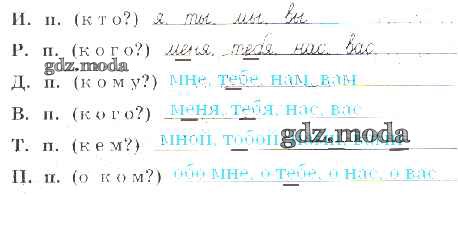 И. п. (кто?) я, ты, мы, вы
Р. п. (кого?) меня, тебя, нас, вас
gdz.moda
Д. п. (кому?) мне, тебе, нам, вам
В. п. (кого?) меня, тебя, нас, вас
Т. п. (кем?) мной, тобой,
gdz.moda
П. п. (о ком?) обо мне, о тебе, о нас, о вас